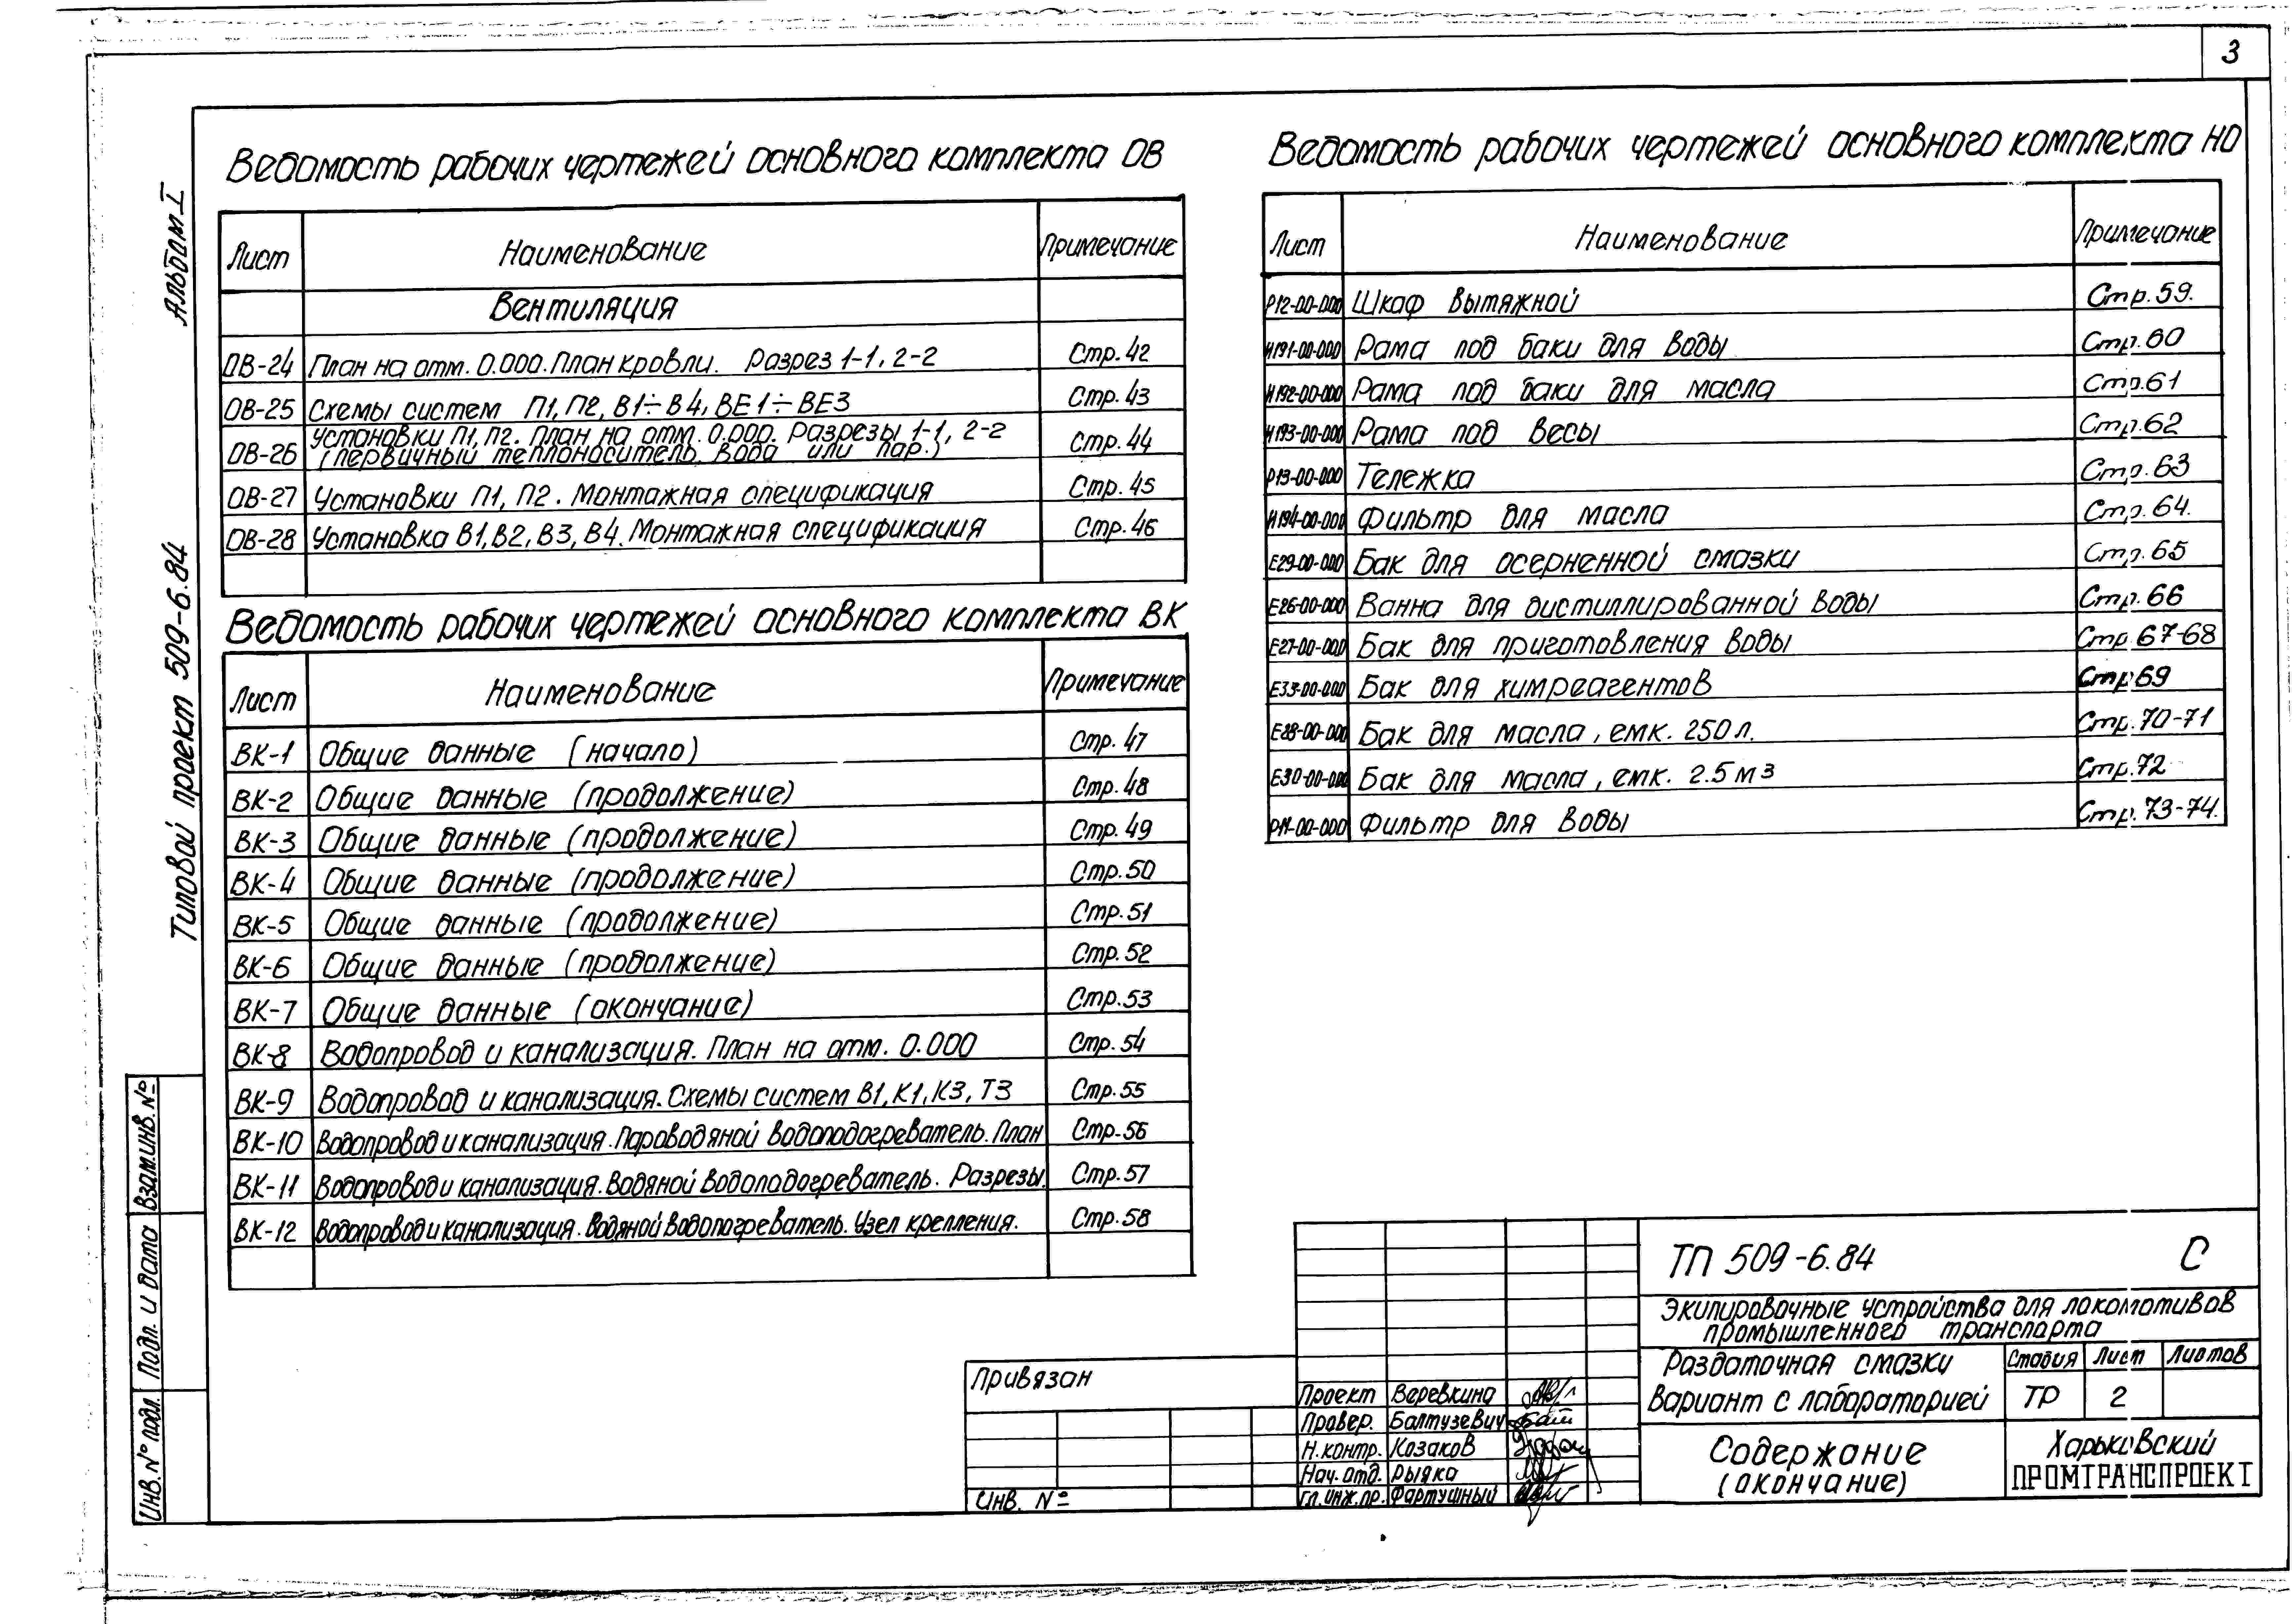 3
Альбом I
Типовой проект 509-6.84
Взам.инв.№
Подп. и дата
Инв.№ подл.
Ведомость рабочих чертежей основного комплекта ОВ
Лист Наименование Примечание
Вентиляция
ОВ-24 План на отм. 0.000. План кровли. Разрез 1-1, 2-2 Стр.42
ОВ-25 Схемы систем П1, П2, В1÷В4, ВЕ1÷ВЕ3 Стр.43
Установки П1, П2. План на отм. 0.000. Разрезы 1-1, 2-2
ОВ-26 (первичный теплоноситель вода или пар.) Стр.44
ОВ-27 Установки П1, П2. Монтажная спецификация Стр.45
ОВ-28 Установка В1, В2, В3, В4. Монтажная спецификация Стр.46
Ведомость рабочих чертежей основного комплекта ВК
Лист Наименование Примечание
ВК-1 Общие данные (начало) Стр.47
ВК-2 Общие данные (продолжение) Стр.48
ВК-3 Общие данные (продолжение) Стр.49
ВК-4 Общие данные (продолжение) Стр.50
ВК-5 Общие данные (продолжение) Стр.51
ВК-6 Общие данные (продолжение) Стр.52
ВК-7 Общие данные (окончание) Стр.53
ВК-8 Водопровод и канализация. План на отм. 0.000 Стр.54
ВК-9 Водопровод и канализация. Схемы систем В1, К1, К3, Т3 Стр.55
ВК-10 Водопровод и канализация. Пароводяной водоподогреватель. План Стр.56
ВК-11 Водопровод и канализация. Водяной водоподогреватель. Разрезы. Стр.57
ВК-12 Водопровод и канализация. Водяной водопогреватель. Узел крепления. Стр.58
Ведомость рабочих чертежей основного комплекта НО
Лист Наименование Примечание
Р12-00-000 Шкаф вытяжной Стр.59.
И191-00-000 Рама под баки для воды Стр.60
И192-00-000 Рама под баки для масла Стр.61
И193-00-000 Рама под весы Стр.62
Р13-00-000 Тележка Стр.63
И194-00-000 Фильтр для масла Стр.64.
Е29-00-000 Бак для осерненной смазки Стр.65
Е26-00-000 Ванна для дистиллированной воды Стр.66
Е27-00-000 Бак для приготовления воды Стр.67-68
Е33-00-000 Бак для химреагентов Стр69
Е28-00-000 Бак для масла, емк. 250 л. Стр.70-71
Е30-00-000 Бак для масла, емк. 2.5 м3 Стр.72
Р11-00-000 Фильтр для воды Стр.73-74.
ТП 509-6.84 С
Экипировочные устройства для локомотивов
промышленного транспорта
Раздаточная смазки
Вариант с лабораторией
Стадия Лист Листов
ТР 2
Содержание
(окончание)
Харьковский
ПРОМТРАНСПРОЕКТ
Привязан
Инв. №
Проект Веревкина
Провер. Балтузевич
Н.контр. Козаков
Нач.отд. Рыяка
Гл.инж.пр. Фартушный